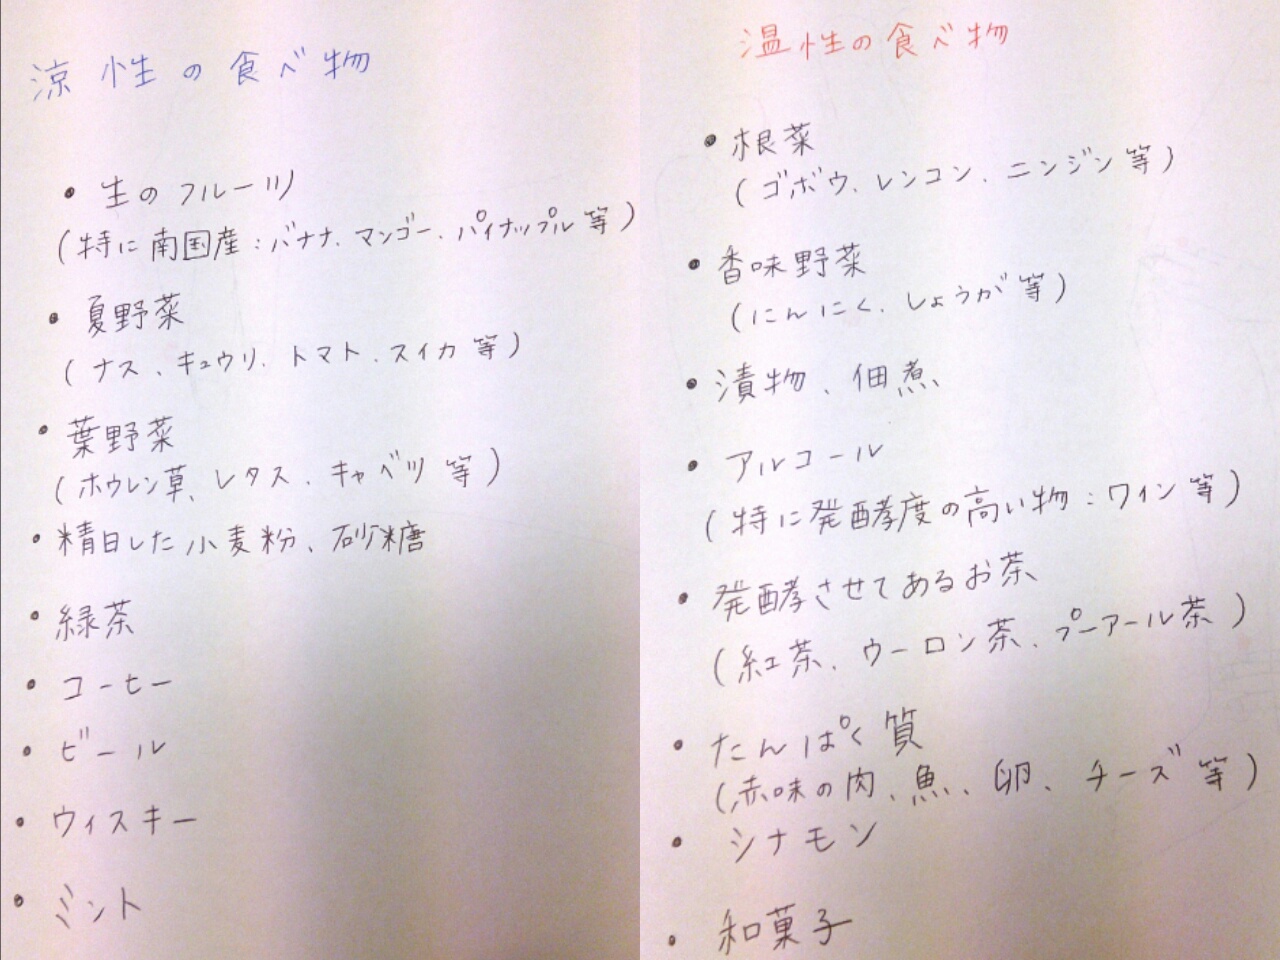 涼性の食べ物
• 生のフルーツ
(特に南国産：バナナ、マンゴー、パイナップル等)
• 夏野菜
(ナス、キュウリ、トマト、スイカ等)
• 葉野菜
(ホウレン草、レタス、キャベツ等)
• 精白した小麦粉、砂糖
• 緑茶
• コーヒー
• ビール
• ウィスキー
• ミント
温性の食べ物
• 根菜
(ゴボウ、レンコン、ニンジン等)
• 香味野菜
(にんにく、しょうが等)
• 漬物、佃煮
• アルコール
(特に発酵度の高い物：ワイン等)
• 発酵させてあるお茶
(紅茶、ウーロン茶、プーアール茶)
• たんぱく質
(赤味の肉、魚、卵、チーズ等)
• シナモン
• 和菓子